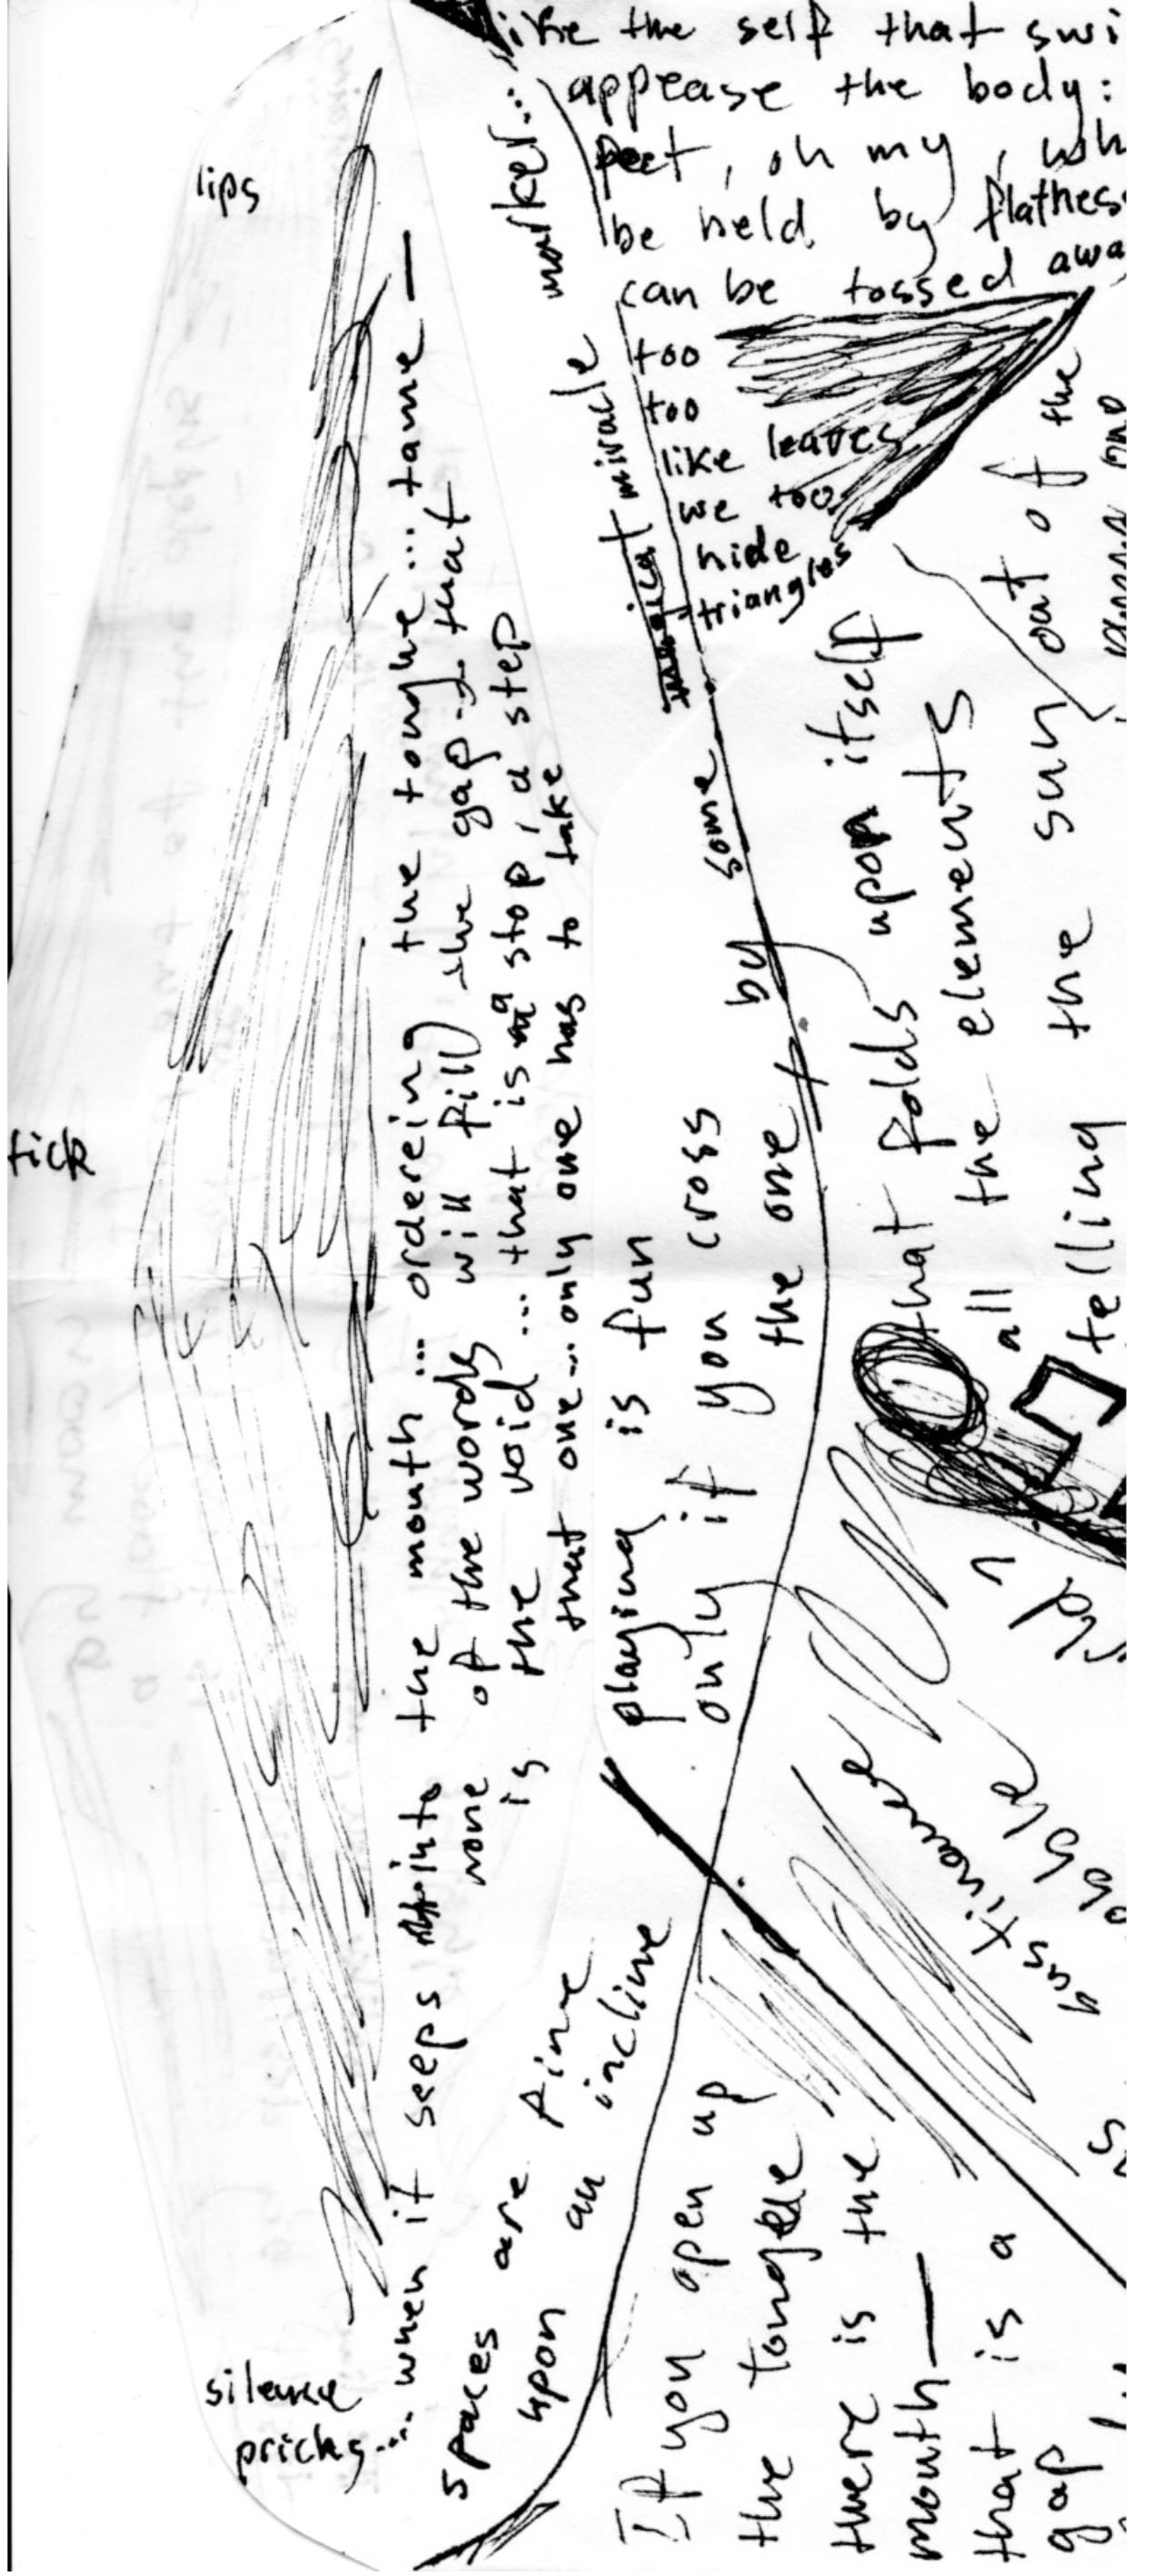 like the self that swi
appease the body:
feet, oh my, wh
be held by flatnes
can be tossed awa
too
too
like leaves
we too
hide
triangles
lips
tick
silence
pricks... when it seeps into the mouth ... ordereing the tongue ... tame —
none of the words will fill the gap ... that
is the void ... that is a stop, a step
that one ... only one has to take
spaces are fine
upon an incline
marker...
miracle
playing is fun
only if you cross
the one by some
that folds upon itself
all the elements
telling the sun out of the
If you open up
the tongue
there is the
mouth —
that is a
gap